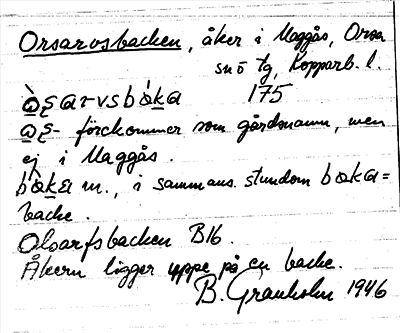 Orsarvsbacken, åker i Maggås, Orsa
sn o tg, Kopparb. l.
175
förekommer som gårdsnamn, men
ej i Maggås.
m., i sammans. stundom
backe.
Olsarfsbacken B16.
Åkern ligger uppe på en backe.
B. Granholm 1946